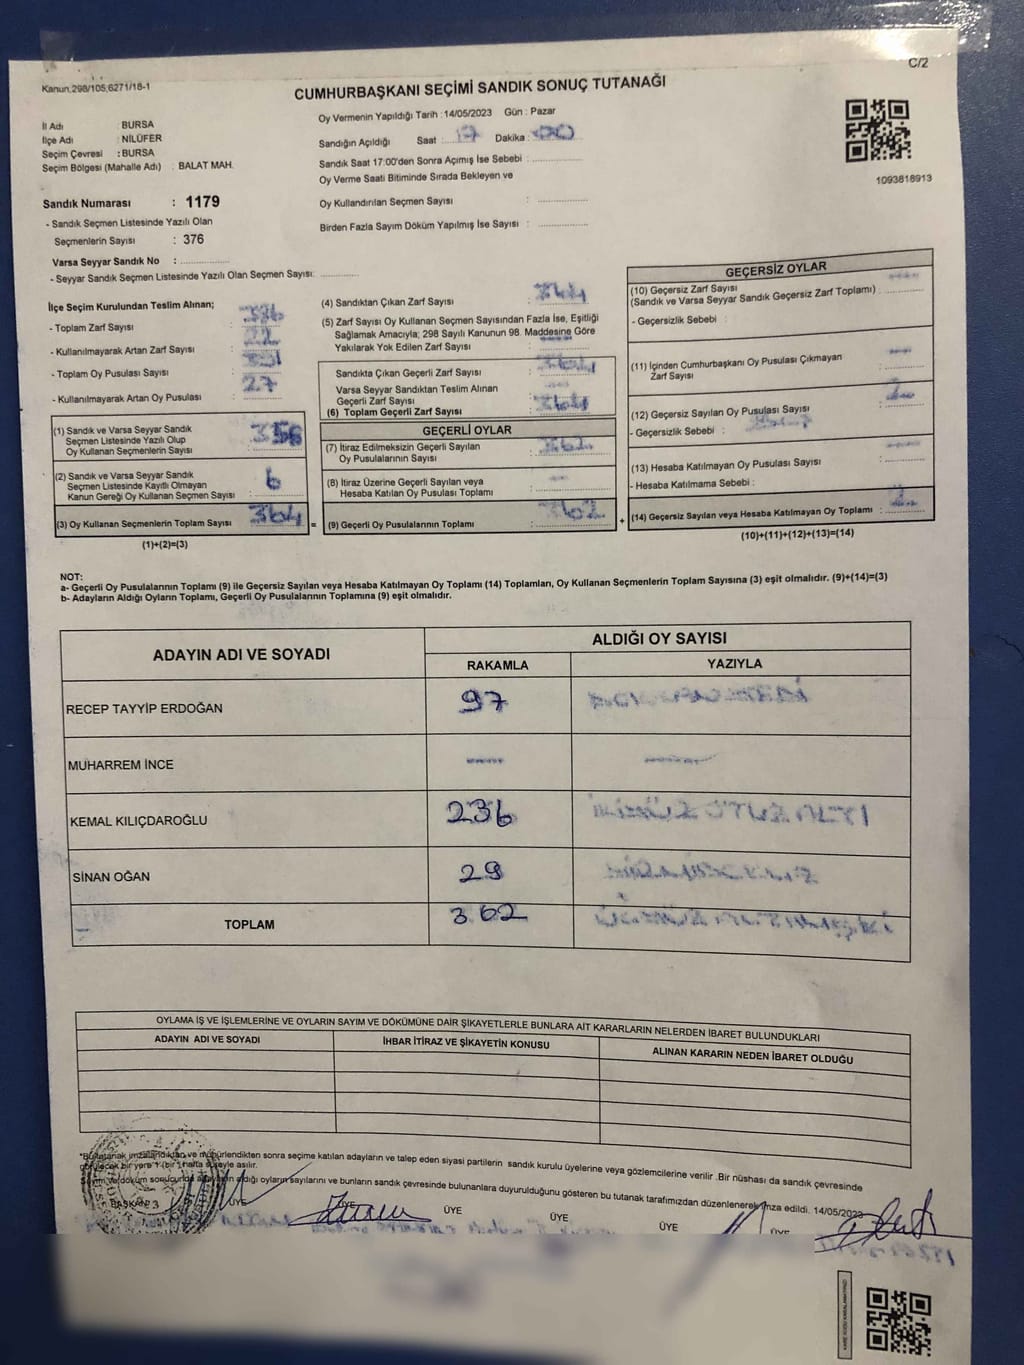 C/2
Kanun,298/105,6271/18-1
CUMHURBAŞKANI SEÇİMİ SANDIK SONUÇ TUTANAĞI
İl Adı : BURSA
İlçe Adı : NİLÜFER
Seçim Çevresi : BURSA
Seçim Bölgesi (Mahalle Adı) : BALAT MAH.
Sandık Numarası : 1179
- Sandık Seçmen Listesinde Yazılı Olan
Seçmenlerin Sayısı : 376
Varsa Seyyar Sandık No :
- Seyyar Sandık Seçmen Listesinde Yazılı Olan Seçmen Sayısı:
Oy Vermenin Yapıldığı Tarih :14/05/2023 Gün : Pazar
Sandığın Açıldığı Saat : 17 Dakika : 00
Sandık Saat 17:00'den Sonra Açımış İse Sebebi :
Oy Verme Saati Bitiminde Sırada Bekleyen ve
Oy Kullandırılan Seçmen Sayısı :
Birden Fazla Sayım Döküm Yapılmış İse Sayısı :
1093818913
İlçe Seçim Kurulundan Teslim Alınan;
- Toplam Zarf Sayısı :
- Kullanılmayarak Artan Zarf Sayısı : 22
- Toplam Oy Pusulası Sayısı :
- Kullanılmayarak Artan Oy Pusulası : 27
(1) Sandık ve Varsa Seyyar Sandık
Seçmen Listesinde Yazılı Olup
Oy Kullanan Seçmenlerin Sayısı :
(2) Sandık ve Varsa Seyyar Sandık
Seçmen Listesinde Kayıtlı Olmayan
Kanun Gereği Oy Kullanan Seçmen Sayısı : 6
(3) Oy Kullanan Seçmenlerin Toplam Sayısı : 364 =
(1)+(2)=(3)
(4) Sandıktan Çıkan Zarf Sayısı : 364
(5) Zarf Sayısı Oy Kullanan Seçmen Sayısından Fazla İse, Eşitliği
Sağlamak Amacıyla; 298 Sayılı Kanunun 98. Maddesine Göre
Yakılarak Yok Edilen Zarf Sayısı :
Sandıkta Çıkan Geçerli Zarf Sayısı : 364
Varsa Seyyar Sandıktan Teslim Alınan
Geçerli Zarf Sayısı :
(6) Toplam Geçerli Zarf Sayısı : 364
GEÇERLİ OYLAR
(7) İtiraz Edilmeksizin Geçerli Sayılan
Oy Pusulalarının Sayısı : 362
(8) İtiraz Üzerine Geçerli Sayılan veya
Hesaba Katılan Oy Pusulası Toplamı :
(9) Geçerli Oy Pusulalarının Toplamı : 362 +
GEÇERSİZ OYLAR
(10) Geçersiz Zarf Sayısı
(Sandık ve Varsa Seyyar Sandık Geçersiz Zarf Toplamı) :
- Geçersizlik Sebebi :
(11) İçinden Cumhurbaşkanı Oy Pusulası Çıkmayan
Zarf Sayısı :
(12) Geçersiz Sayılan Oy Pusulası Sayısı : 2
- Geçersizlik Sebebi :
(13) Hesaba Katılmayan Oy Pusulası Sayısı :
- Hesaba Katılmama Sebebi :
(14) Geçersiz Sayılan veya Hesaba Katılmayan Oy Toplamı : 2
(10)+(11)+(12)+(13)=(14)
NOT:
a- Geçerli Oy Pusulalarının Toplamı (9) ile Geçersiz Sayılan veya Hesaba Katılmayan Oy Toplamı (14) Toplamları, Oy Kullanan Seçmenlerin Toplam Sayısına (3) eşit olmalıdır. (9)+(14)=(3)
b- Adayların Aldığı Oyların Toplamı, Geçerli Oy Pusulalarının Toplamına (9) eşit olmalıdır.
ADAYIN ADI VE SOYADI
ALDIĞI OY SAYISI
RAKAMLA YAZIYLA
RECEP TAYYİP ERDOĞAN 97
MUHARREM İNCE
KEMAL KILIÇDAROĞLU 236
SİNAN OĞAN 29
TOPLAM 362
OYLAMA İŞ VE İŞLEMLERİNE VE OYLARIN SAYIM VE DÖKÜMÜNE DAİR ŞİKAYETLERLE BUNLARA AİT KARARLARIN NELERDEN İBARET BULUNDUKLARI
ADAYIN ADI VE SOYADI İHBAR İTİRAZ VE ŞİKAYETİN KONUSU ALINAN KARARIN NEDEN İBARET OLDUĞU
*Bu tutanak imzalandıktan ve mühürlendikten sonra seçime katılan adayların ve talep eden siyasi partilerin sandık kurulu üyelerine veya gözlemcilerine verilir .Bir nüshası da sandık çevresinde
görülecek bir yere 1 (bir ) hafta süreyle asılır.
Sayım ve döküm sonucunda adayların aldığı oyların sayılarını ve bunların sandık çevresinde bulunanlara duyurulduğunu gösteren bu tutanak tarafımızdan düzenlenerek imza edildi. 14/05/2023
BAŞKAN ÜYE ÜYE ÜYE ÜYE ÜYE ÜYE